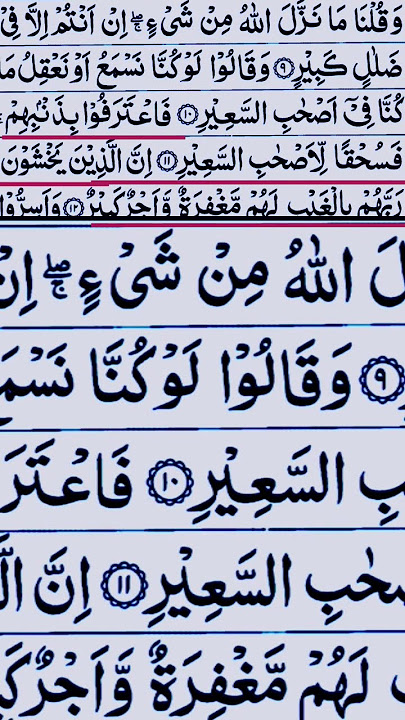 وَقُلْنَا مَا نَزَّلَ اللّٰهُ مِنْ شَیْءٍ ۚۖ اِنْ اَنْتُمْ اِلَّا فِیْ
ضَلٰلٍ كَبِیْرٍ ﴿۹﴾ وَقَالُوْا لَوْ كُنَّا نَسْمَعُ اَوْ نَعْقِلُ مَا
كُنَّا فِیْۤ اَصْحٰبِ السَّعِیْرِ ﴿۱۰﴾ فَاعْتَرَفُوْا بِذَنْۢبِهِمْ ۚ
فَسُحْقًا لِّاَصْحٰبِ السَّعِیْرِ ﴿۱۱﴾ اِنَّ الَّذِیْنَ یَخْشَوْنَ
رَبَّهُمْ بِالْغَیْبِ لَهُمْ مَّغْفِرَةٌ وَّاَجْرٌ كَبِیْرٌ ﴿۱۲﴾ وَاَسِرُّوْا
لَ اللّٰهُ مِنْ شَیْءٍ ۚۖ اِنْ
﴿۹﴾ وَقَالُوْا لَوْ كُنَّا نَسْمَ
بِ السَّعِیْرِ ﴿۱۰﴾ فَاعْتَرَ
صْحٰبِ السَّعِیْرِ ﴿۱۱﴾ اِنَّ الَّ
لَهُمْ مَّغْفِرَةٌ وَّاَجْرٌ كَبِ